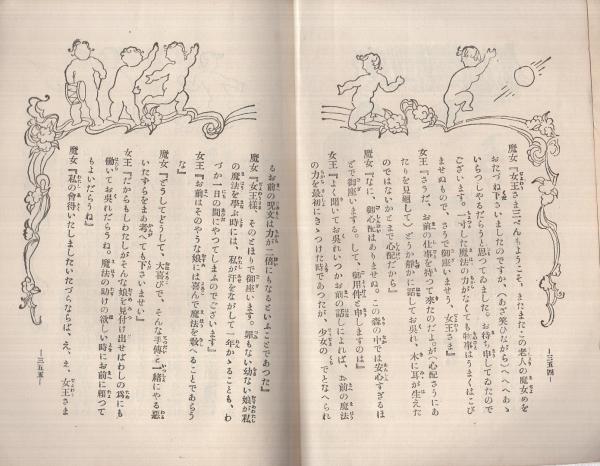 魔女『女王さま三べんもようこそ、またまたこの老人の魔女めを
おたづね下さいましたのですか、（あざ笑ひながら）へへへあゝ
いらつしやるだらうと思つてゐました。お待ち申してゐたので
ございます。一寸した魔法の力がなくても物事はうまくはこび
ませぬもので、さうで御座いませう、女王さま』
女王『さうだ、お前の仕事を持つて来たのだよ。が心配さうにあ
たりを見廻して）どうか静かに話してお呉れ、木に耳が生えた
のではないかとまで心配だから』
魔女『なに、御心配はありませぬ。この森の中では安心すぎるほ
どで御座います。して、御用件と申しますのは』
女王『よく聞いてお呉れいつかお前の話しによれば、お前の魔法
の力を最初にきゝつけた時であつたが、少女の
でとなへられ
―三五四―
るお前の咒文は力が二倍にもなるといふことであつた』
魔女『女王様、そのとほりで御座います、罪もない幼ない娘が私
の魔法を學ぶ時には、私が汗をながして一年かゝることも、わ
づか一日の間にやつてしまふのでございます』
女王『お前はそのやうな娘には喜んで魔法を敎へることであらう
な』
魔女『どうしてどうして、大喜びで、そんな手傳と一緒にやる惡
いたずらをまあ考へても下さいませ』
女王『だからもしわたしがそんな娘を見付け出せばわしの爲にも
働いてお呉れだらうね。魔法の助けの欲しい時にお前に賴つて
もよいだらうね』
魔女『私の會得いたしましたいたづらならば、え、え、女王さま
―三五五―